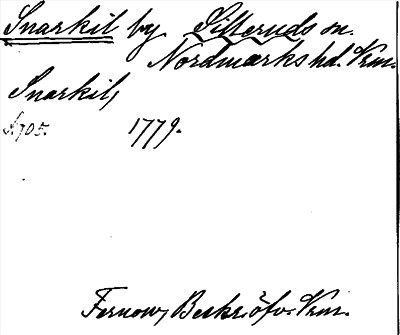 Snarkil by Silleruds sn.
Nordmarks hd. Vrm.
Snarkil,
S. 705. 1779.
Fernow, Beskr. öfv. Vrm.